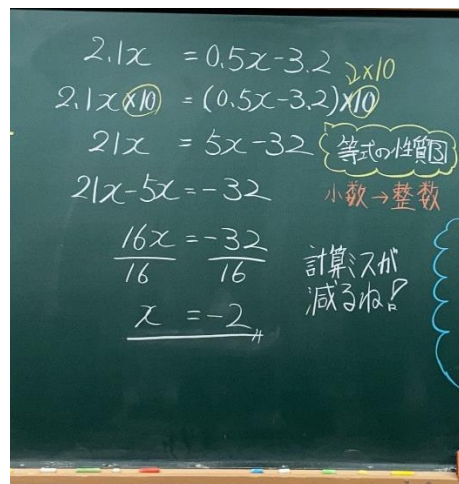 2.1x = 0.5x-3.2
×10
2.1x×10 = (0.5x-3.2)×10
21x = 5x-32
等式の性質③
21x-5x=-32
小数→整数
16x/16 = -32/16
計算ミスが
減るね!
x = -2